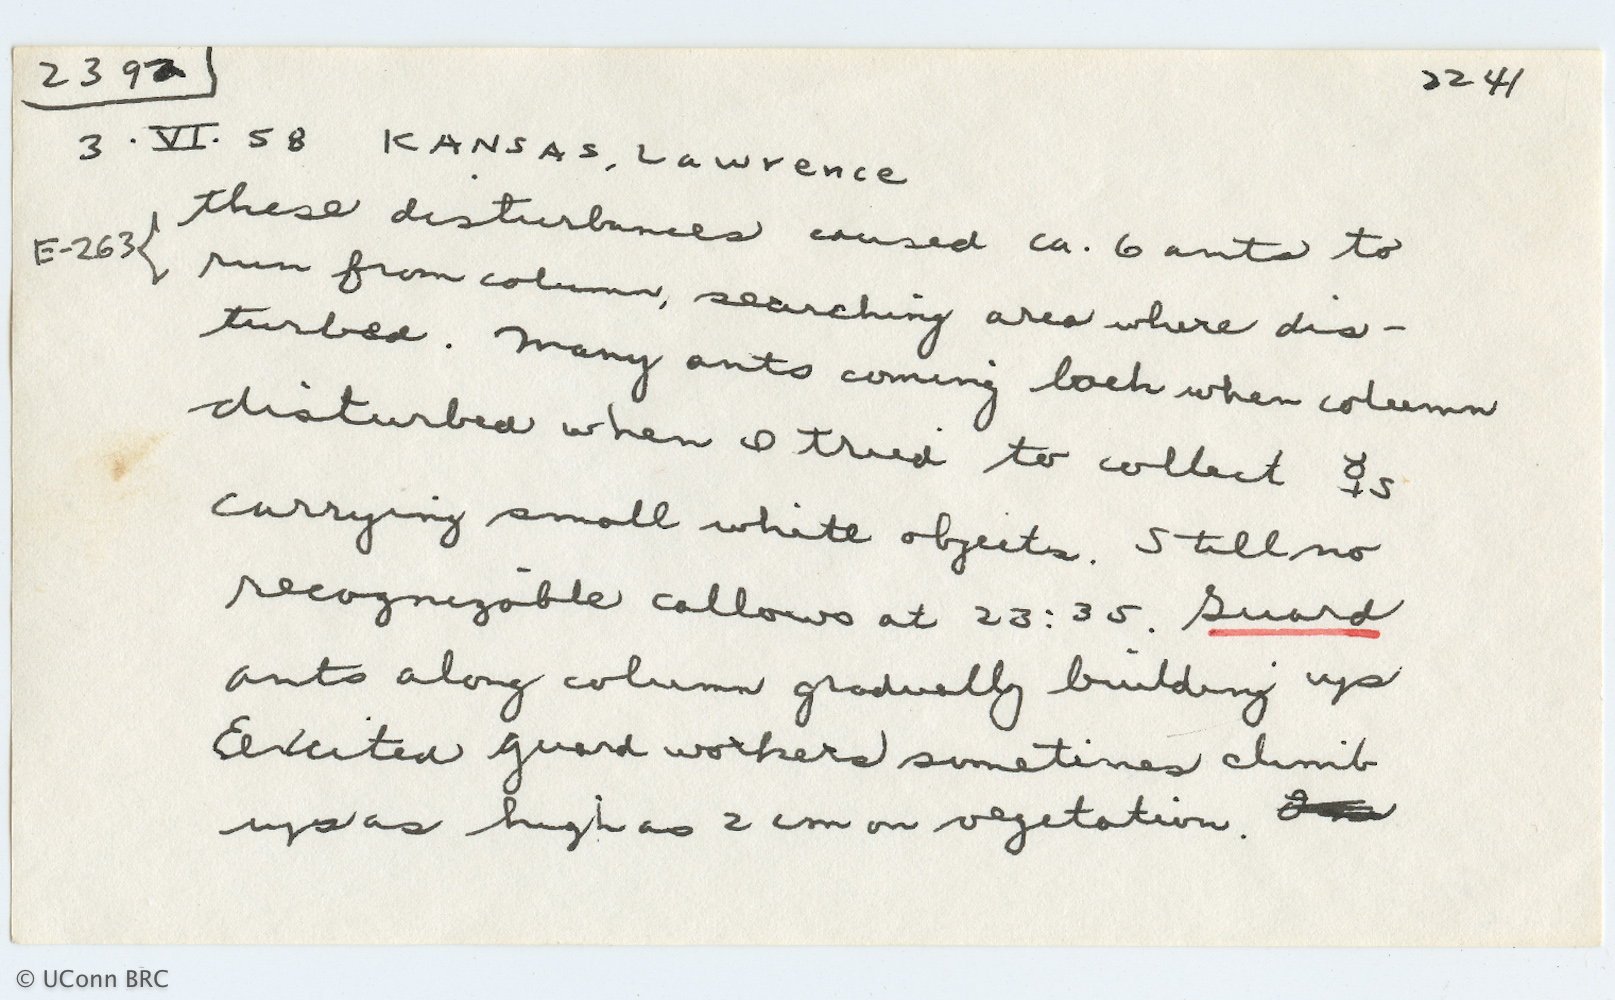 2392
2241
3 · VI · 58 KANSAS, Lawrence
these disturbances caused ca. 6 ants to
E-263 { run from column, searching area where dis-
turbed. Many ants coming back when column
disturbed when I tried to collect ☿s
carrying small white objects. Still no
recognizable callows at 23:35. Guard
ants along column gradually building up
Excited guard workers sometimes climb
up as high as 2 cm on vegetation.
© UConn BRC